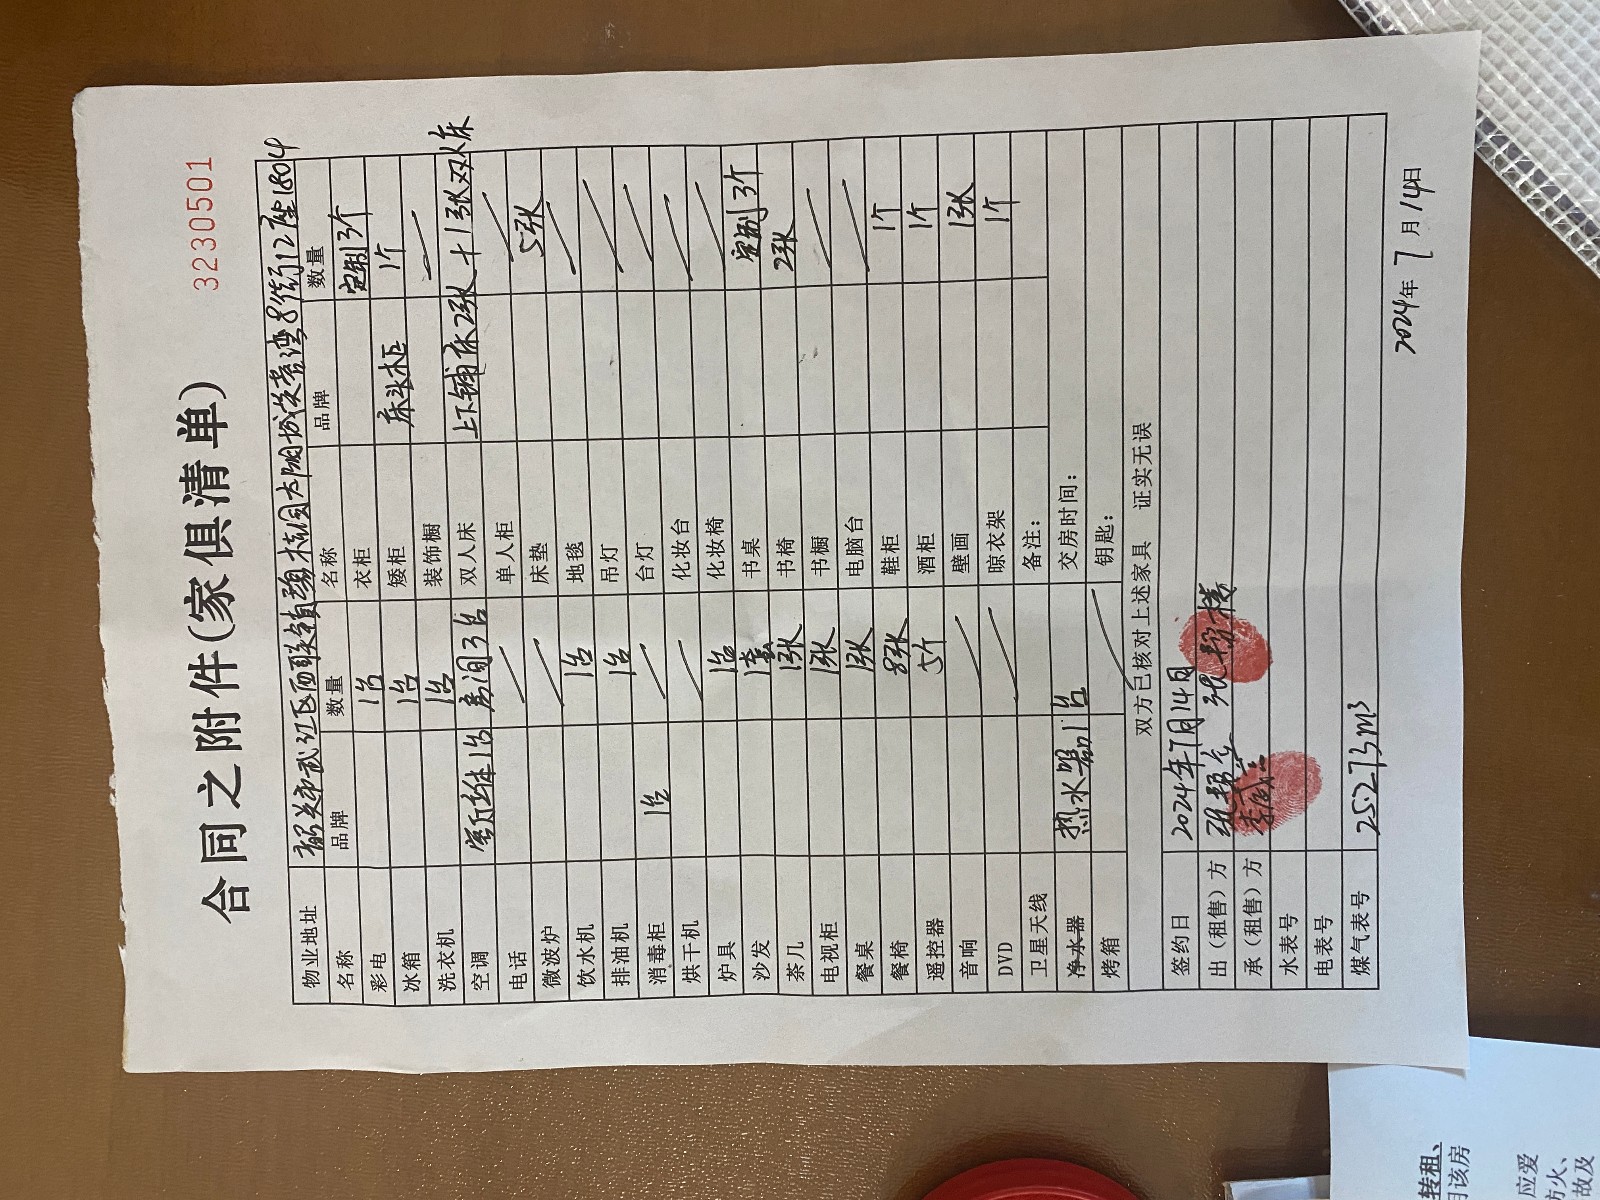 3230501
合同之附件(家俱清单)
物业地址 韶关市武江区西联镇碧桂园太阳城芙蓉湾8街12座1804
名称 品牌 数量 名称 品牌 数量
彩电 1台 衣柜 定制3个
冰箱 1台 矮柜 床头柜 1个
洗衣机 1台 装饰橱
空调 客厅柜1台 房间3台 双人床 上下铺床2张+1张双人床
电话 单人柜
微波炉 床垫 5张
饮水机 1台 地毯
排油机 1台 吊灯
消毒柜 1台 台灯
烘干机 化妆台
炉具 1台 化妆椅
沙发 1套 书桌 定制3个
茶几 1张 书椅 2张
电视柜 1张 书橱
餐桌 1张 电脑台
餐椅 8张 鞋柜 1个
遥控器 5个 酒柜 1个
音响 壁画 1张
DVD 晾衣架 1个
卫星天线 备注:
净水器 热水器1台 交房时间:
烤箱 钥匙:
双方已核对上述家具 证实无误
签约日 2024年7月14日
出(租售)方
承(租售)方
水表号
电表号
煤气表号 25.273m³
2024年7月14日
转租、
该房
应爱
防火、
故及